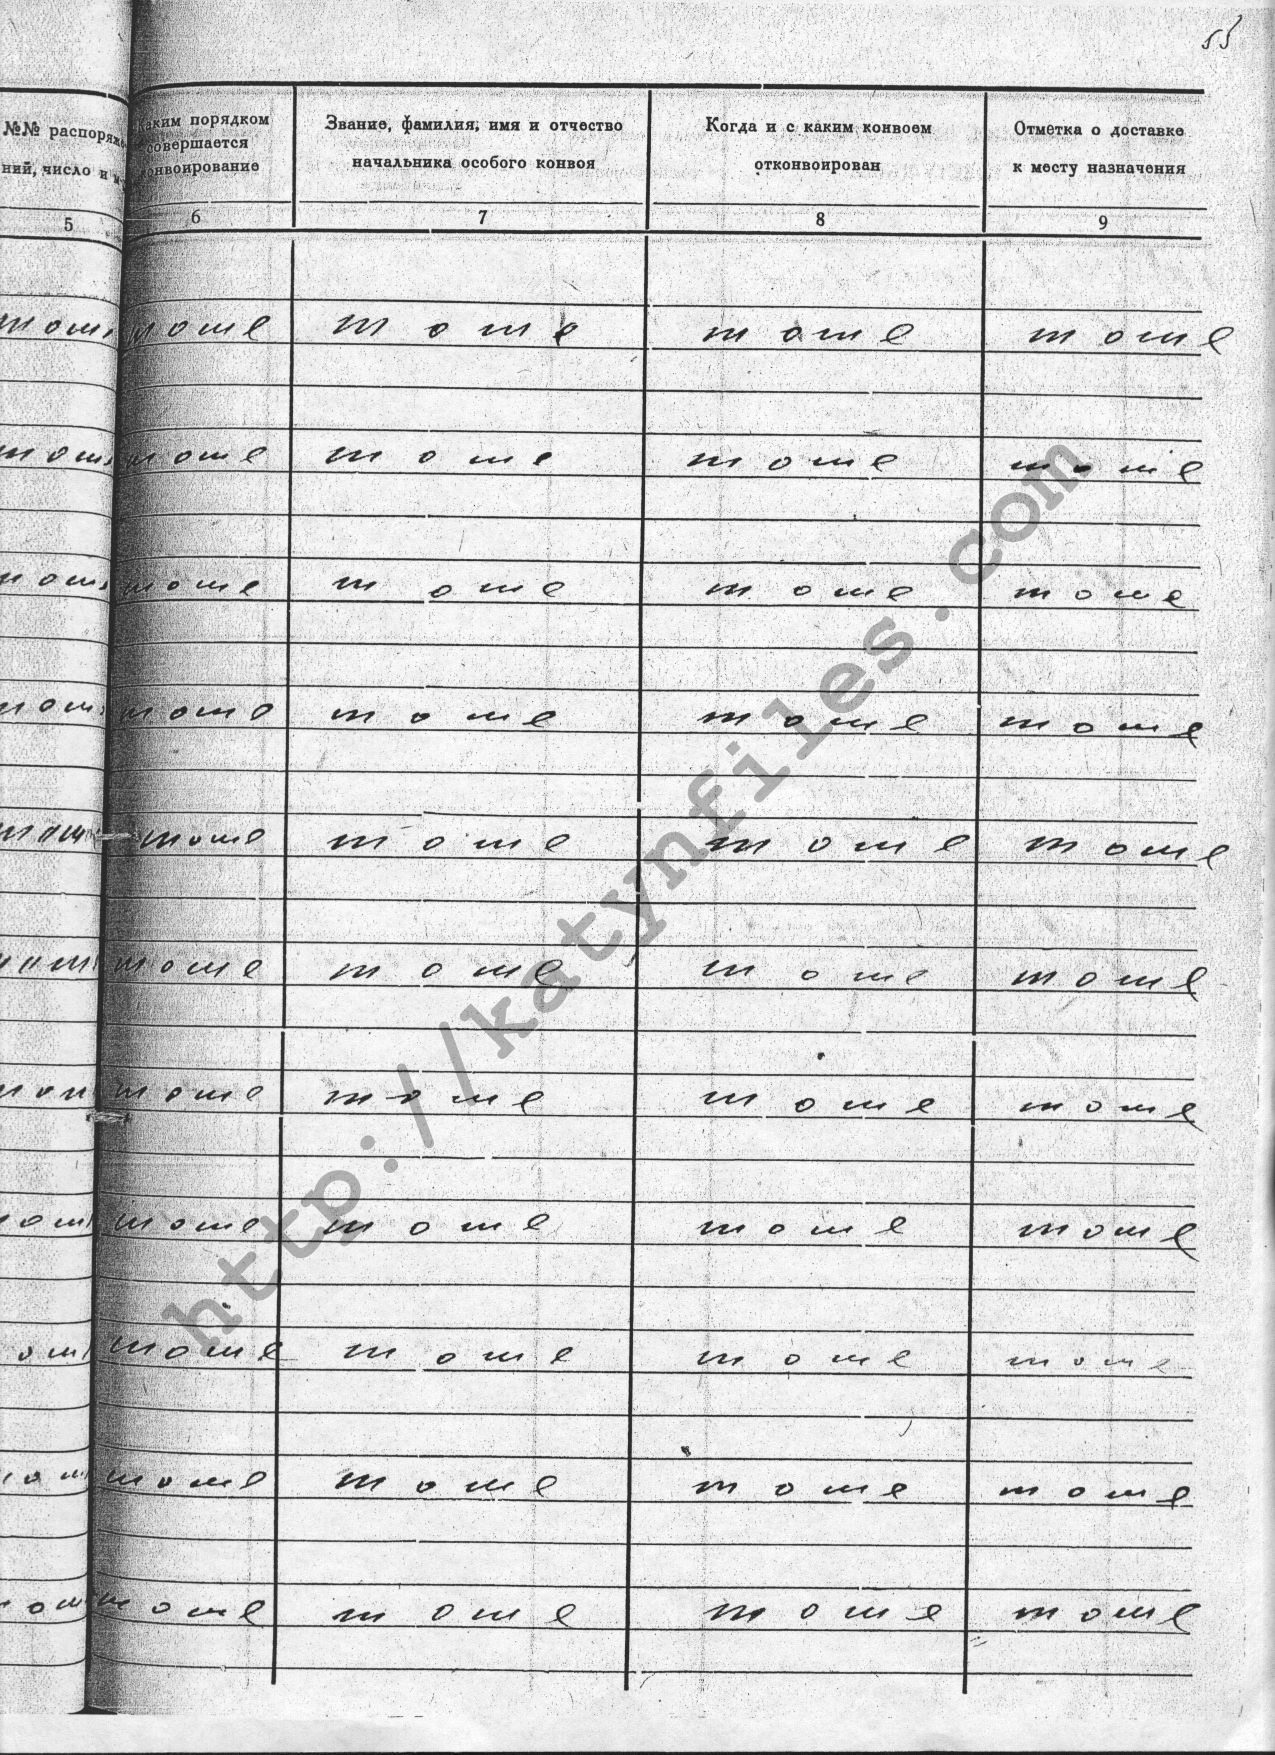 55
№№ распоряже-
ний, число и
5
Каким порядком
совершается
конвоирование
6
Звание, фамилия, имя и отчество
начальника особого конвоя
7
Когда и с каким конвоем
отконвоирован
8
Отметка о доставке
к месту назначения
9
тоже тоже тоже тоже тоже
тоже тоже тоже тоже тоже
тоже тоже тоже тоже тоже
тоже тоже тоже тоже тоже
тоже тоже тоже тоже тоже
тоже тоже тоже тоже тоже
тоже тоже тоже тоже тоже
тоже тоже тоже тоже тоже
тоже тоже тоже тоже
тоже тоже тоже тоже
тоже тоже тоже тоже
http://katynfiles.com